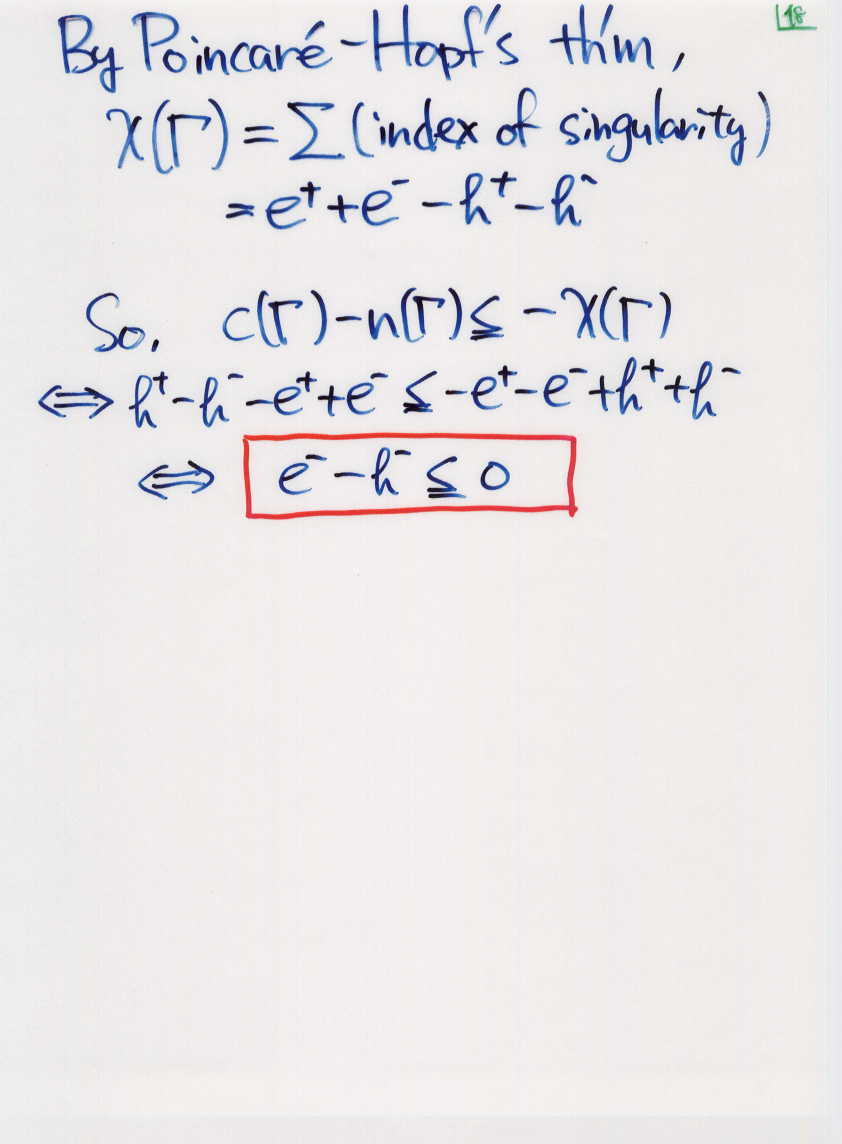 18
By Poincaré-Hopf's th'm,
χ(Γ) = Σ (index of singularity)
= e⁺ + e⁻ - h⁺ - h⁻
So, c(Γ) - n(Γ) ≦ - χ(Γ)
⇔ h⁺ - h⁻ - e⁺ + e⁻ ≦ - e⁺ - e⁻ + h⁺ + h⁻
⇔ e⁻ - h⁻ ≦ 0